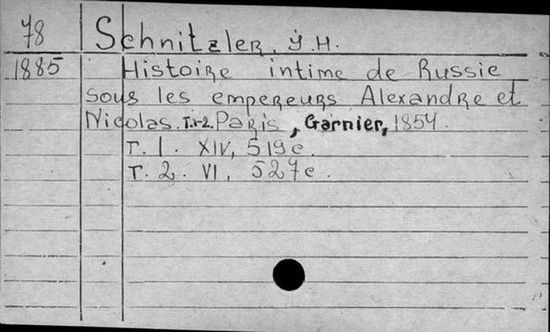 78 Schnitzler, J.H.
1885 Histoire intime de Russie
sous les empereurs Alexandre et
Nicolas. T.1-2. Paris, Garnier, 1854.
T. 1. XIV, 519c.
T. 2. VI, 527c.